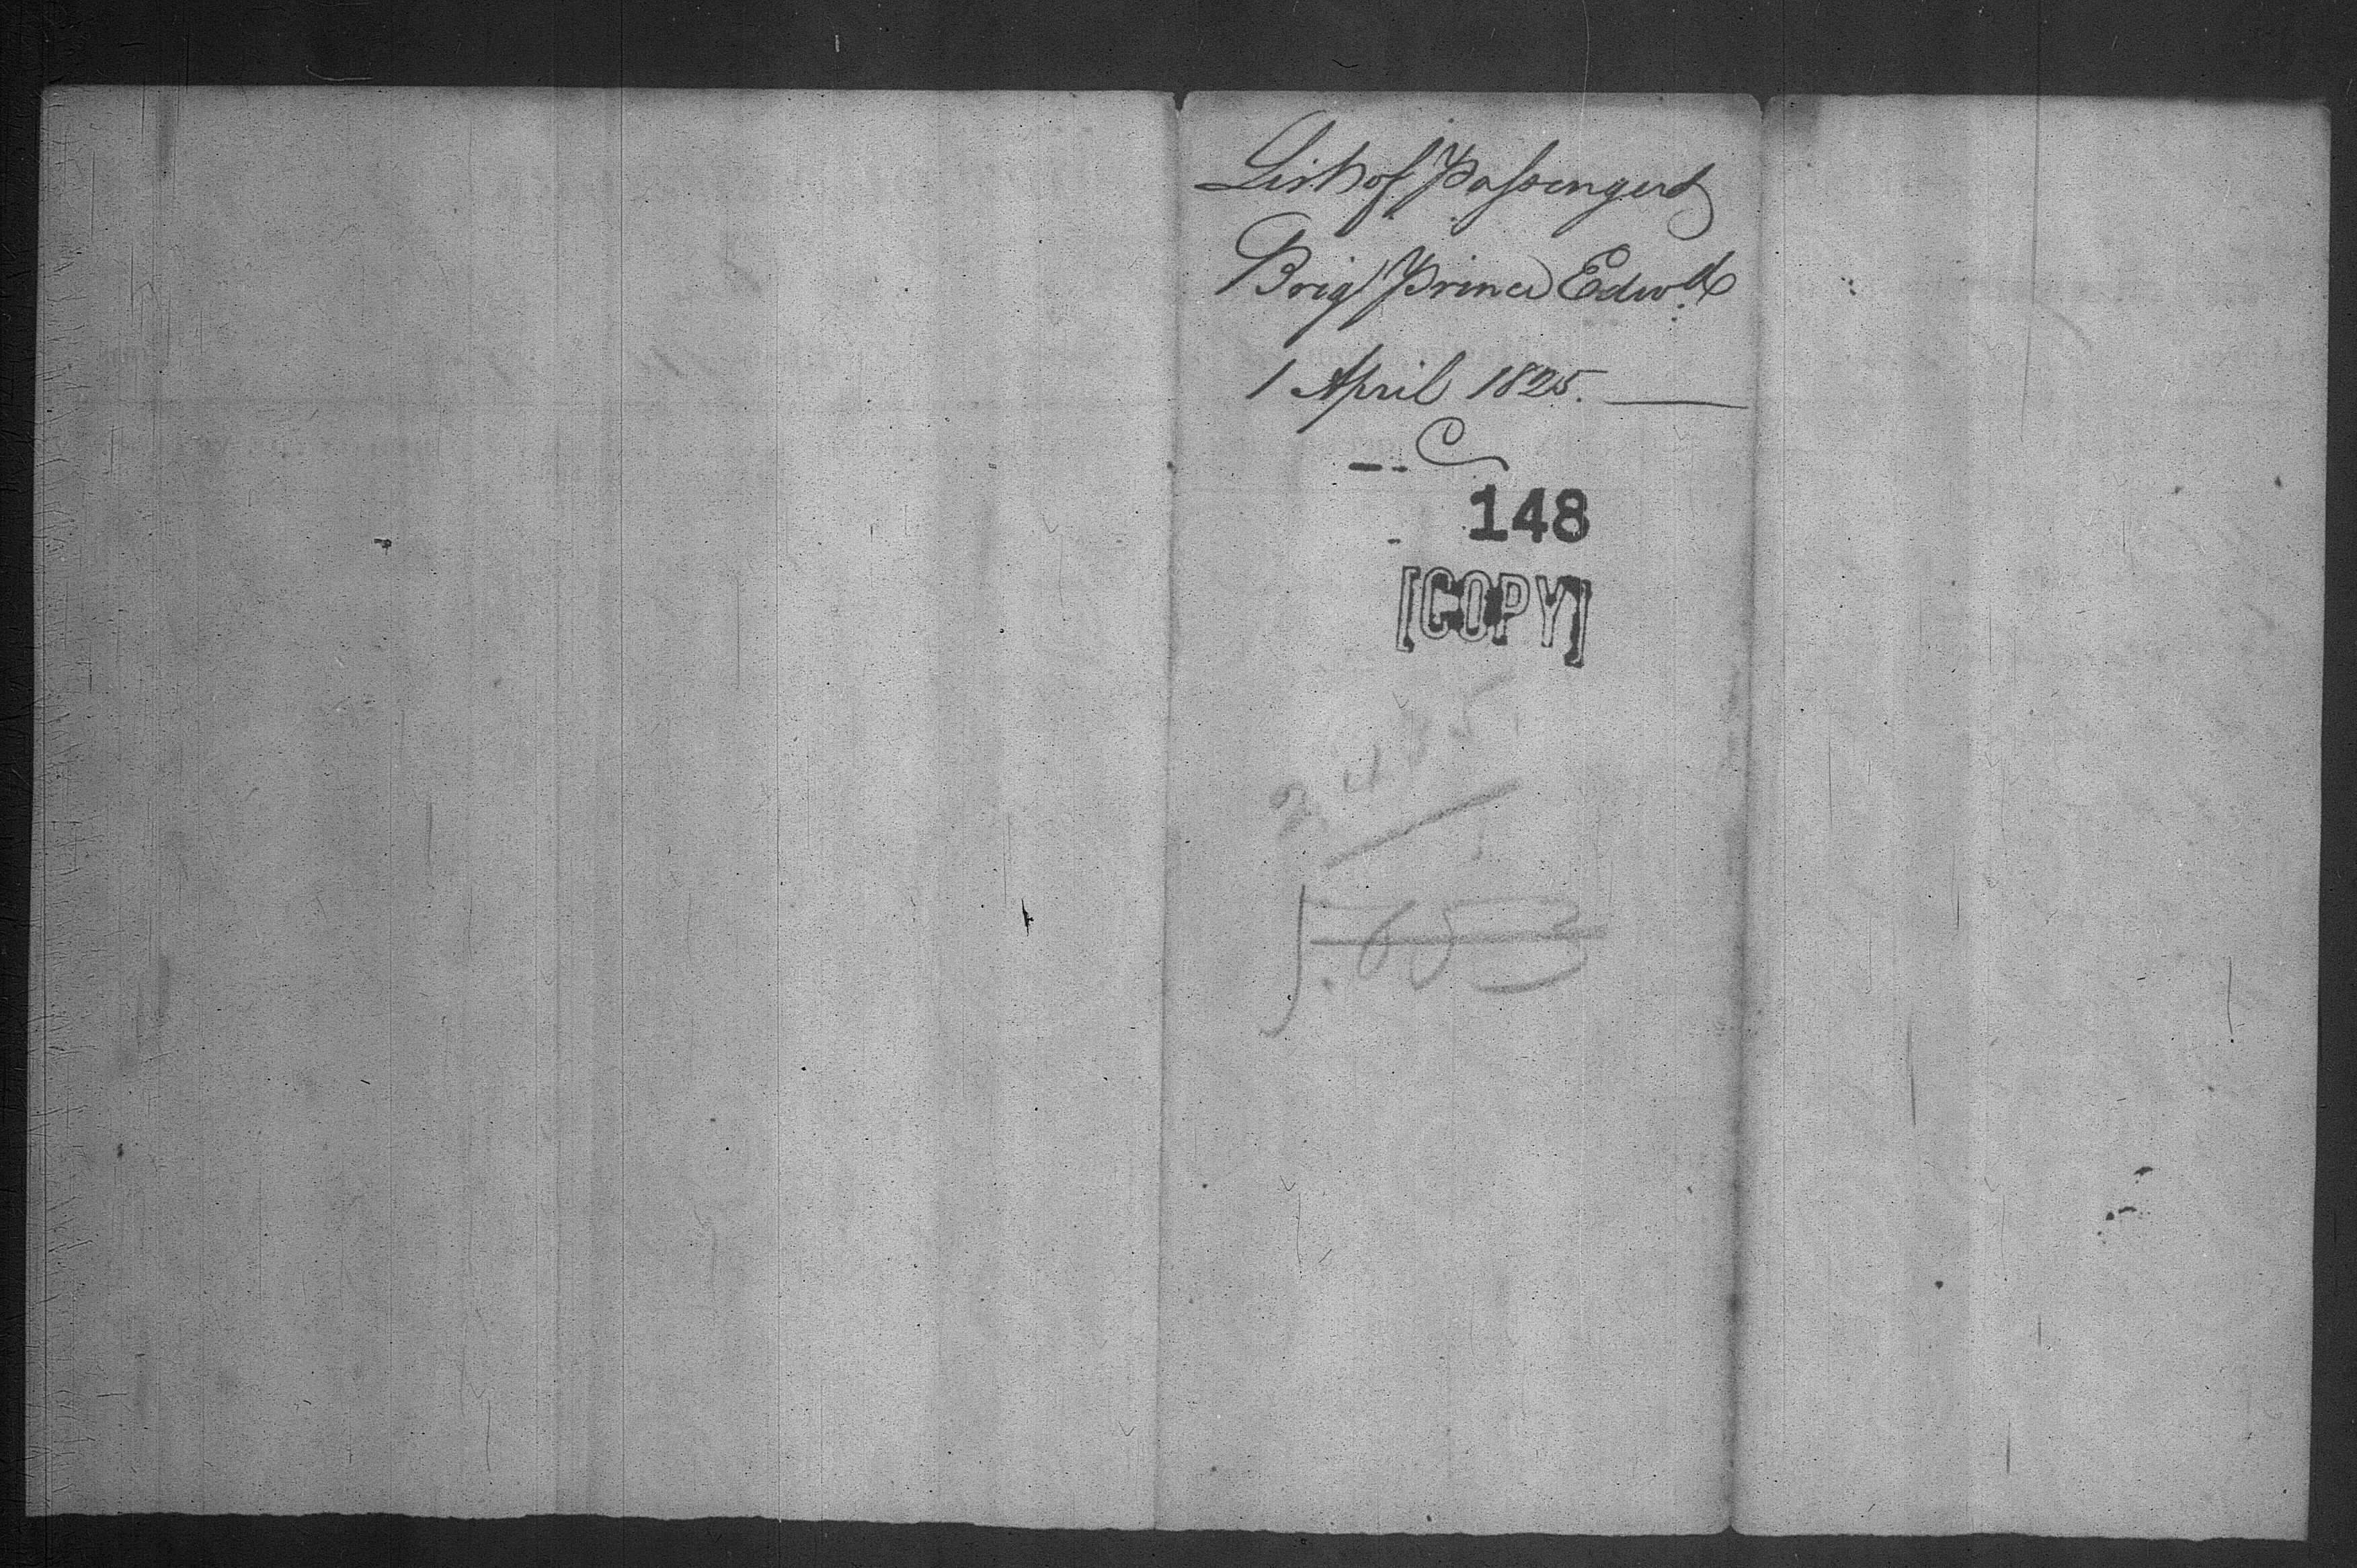 List of Passengers
Brig Prince Edwd
1 April 1825.
C
148
[COPY]